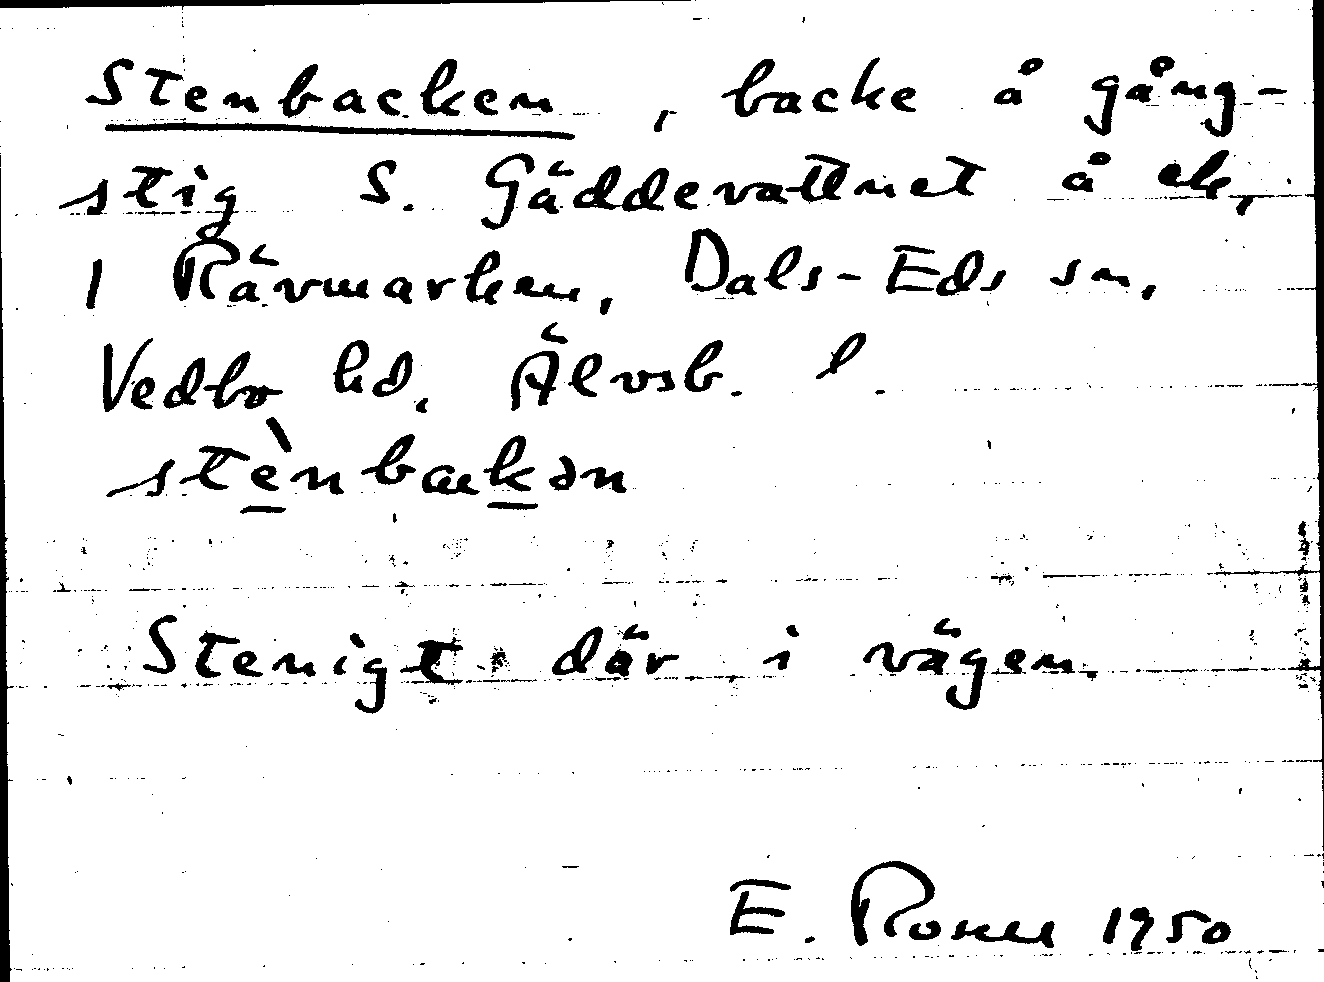 Stenbacken, backe å gång-
stig S. Gäddevattnet å ek,
1 Rävmarken, Dals-Eds sn,
Vedbo hd. Älvsb. l.
stènbackən
Stenigt där i vägen.
E. Rosell 1950